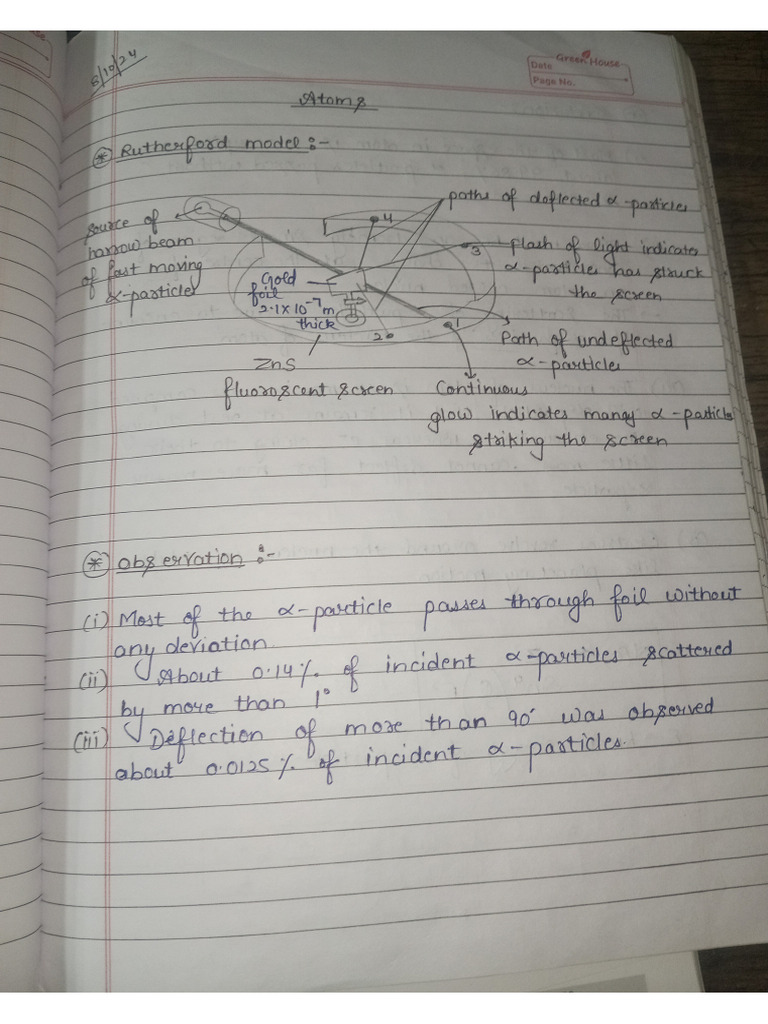 8/10/24
Green House
Date
Page No.
Atoms
* Rutherford model :-
source of
narrow beam
of fast moving
α-particles
4
paths of deflected α-particles
3
flash of light indicates
α-particles has struck
the screen
Gold
foil
2.1×10⁻⁷m
thick
2
1
Path of undeflected
α-particles
ZnS
fluoroscent screen
Continuous
glow indicates many α-particle
striking the screen
* Observation :-
(i) Most of the α-particle passes through foil without
any deviation.
(ii) About 0.14% of incident α-particles scattered
by more than 1°
(iii) Deflection of more than 90° was observed
about 0.0125% of incident α-particles.